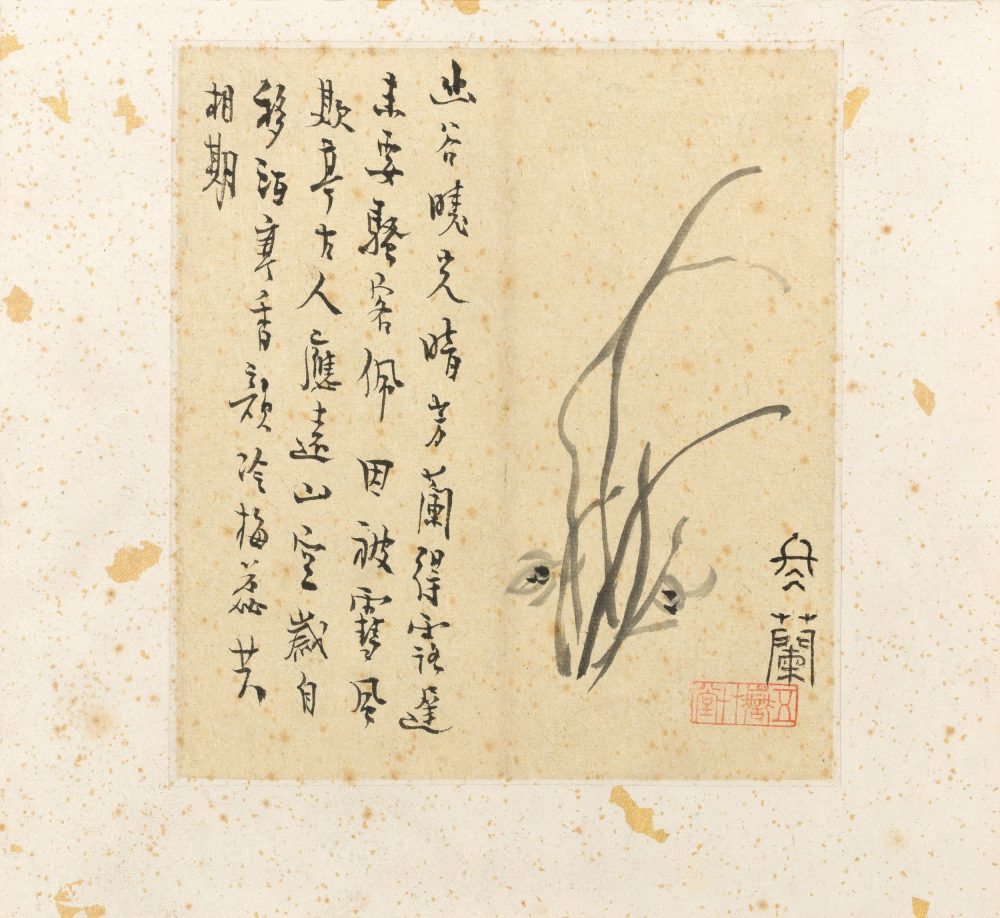 冬蘭
幽谷曉光暗芳蘭得露遲
未要騷客佩因被雪風
欺古人應遠山空歲自
移香冷梅蕊共
相期